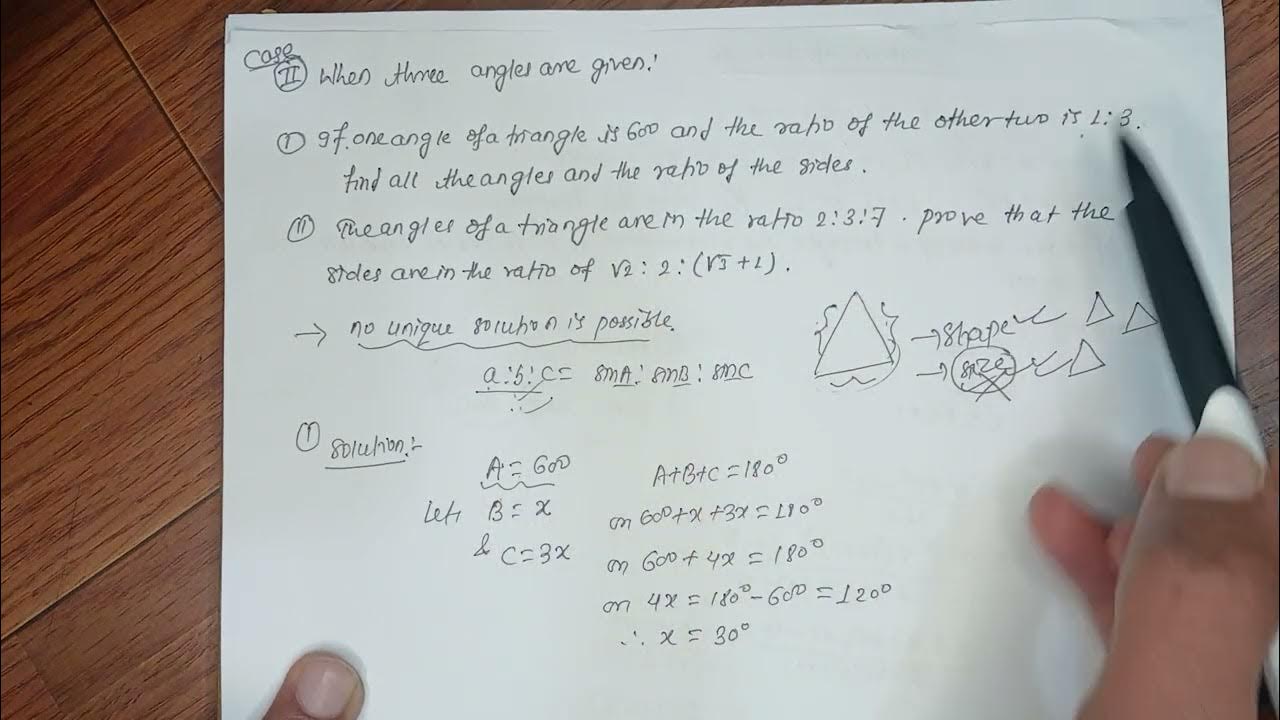 Case
II When three angles are given:
I If one angle of a triangle is 60° and the ratio of the other two is 1:3.
find all the angles and the ratio of the sides.
II The angles of a triangle are in the ratio 2:3:7. prove that the
sides are in the ratio of √2: 2: (√3+1).
→ no unique solution is possible.
→ shape
→ size
a:b:c = sinA: sinB: sinC
I solution:-
A = 60° A+B+C = 180°
Let, B = x or 60°+x+3x = 180°
& C = 3x or 60°+4x = 180°
or 4x = 180°-60° = 120°
∴ x = 30°